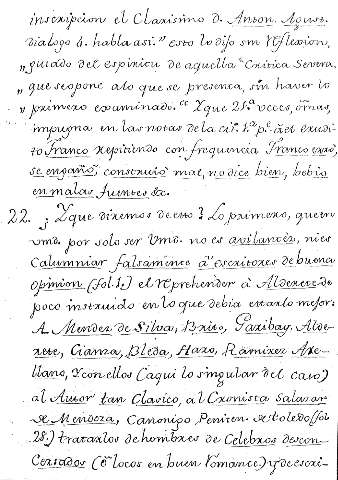 inscripcion el Clarisimo D. Anton. August.
dialogo 4. habla asi." esto lo dijo sin reflexion,
„ guiado del espiritu de aquella Critica Severa,
„ que se opone a lo que se presenta, sin haver lo
„ primero examinado." Y que 25.ª veces, ò mas,
impugna en las notas de la cit. 1.ª p.e à el erudi-
to Franco repitiendo con frequencia Franco errò,
se engañò, construiò mal, no dice bien, bebiò
en malas fuentes &c.
22. ¿Y que diremos de esto? Lo primero, que en
Vmd. por solo ser Vmd. no es avilantèz, ni es
Calumniar falsamente à escritores de buena
opinion (fol. 1.) el reprehender à Alderete de
poco instruido en lo que debia estarlo mejor:
A Mendez de Silva, Brito, Garibay, Alde-
rete, Cianza, Bleda, Haro, Ramirez Are-
llano, y con ellos (aqui lo singular del caso)
al Autor tan Clasico, al Cronista Salazar
de Mendoza, Canonigo Peniten. de Toledo (fol.
28.) tratarlos de hombres de Celebros descon-
Certados (ò locos en buen romance) y de escri-